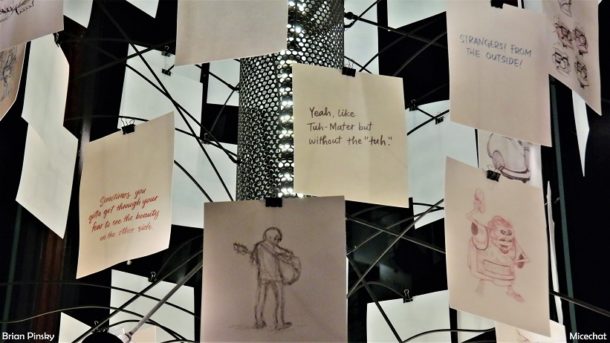 STRANGERS! FROM
THE OUTSIDE!
Yeah, like
Tuh-Mater but
without the "tuh."
Sometimes, you
gotta get through your
fear to see the beauty
on the other side.
Brian Pinsky
Micechat